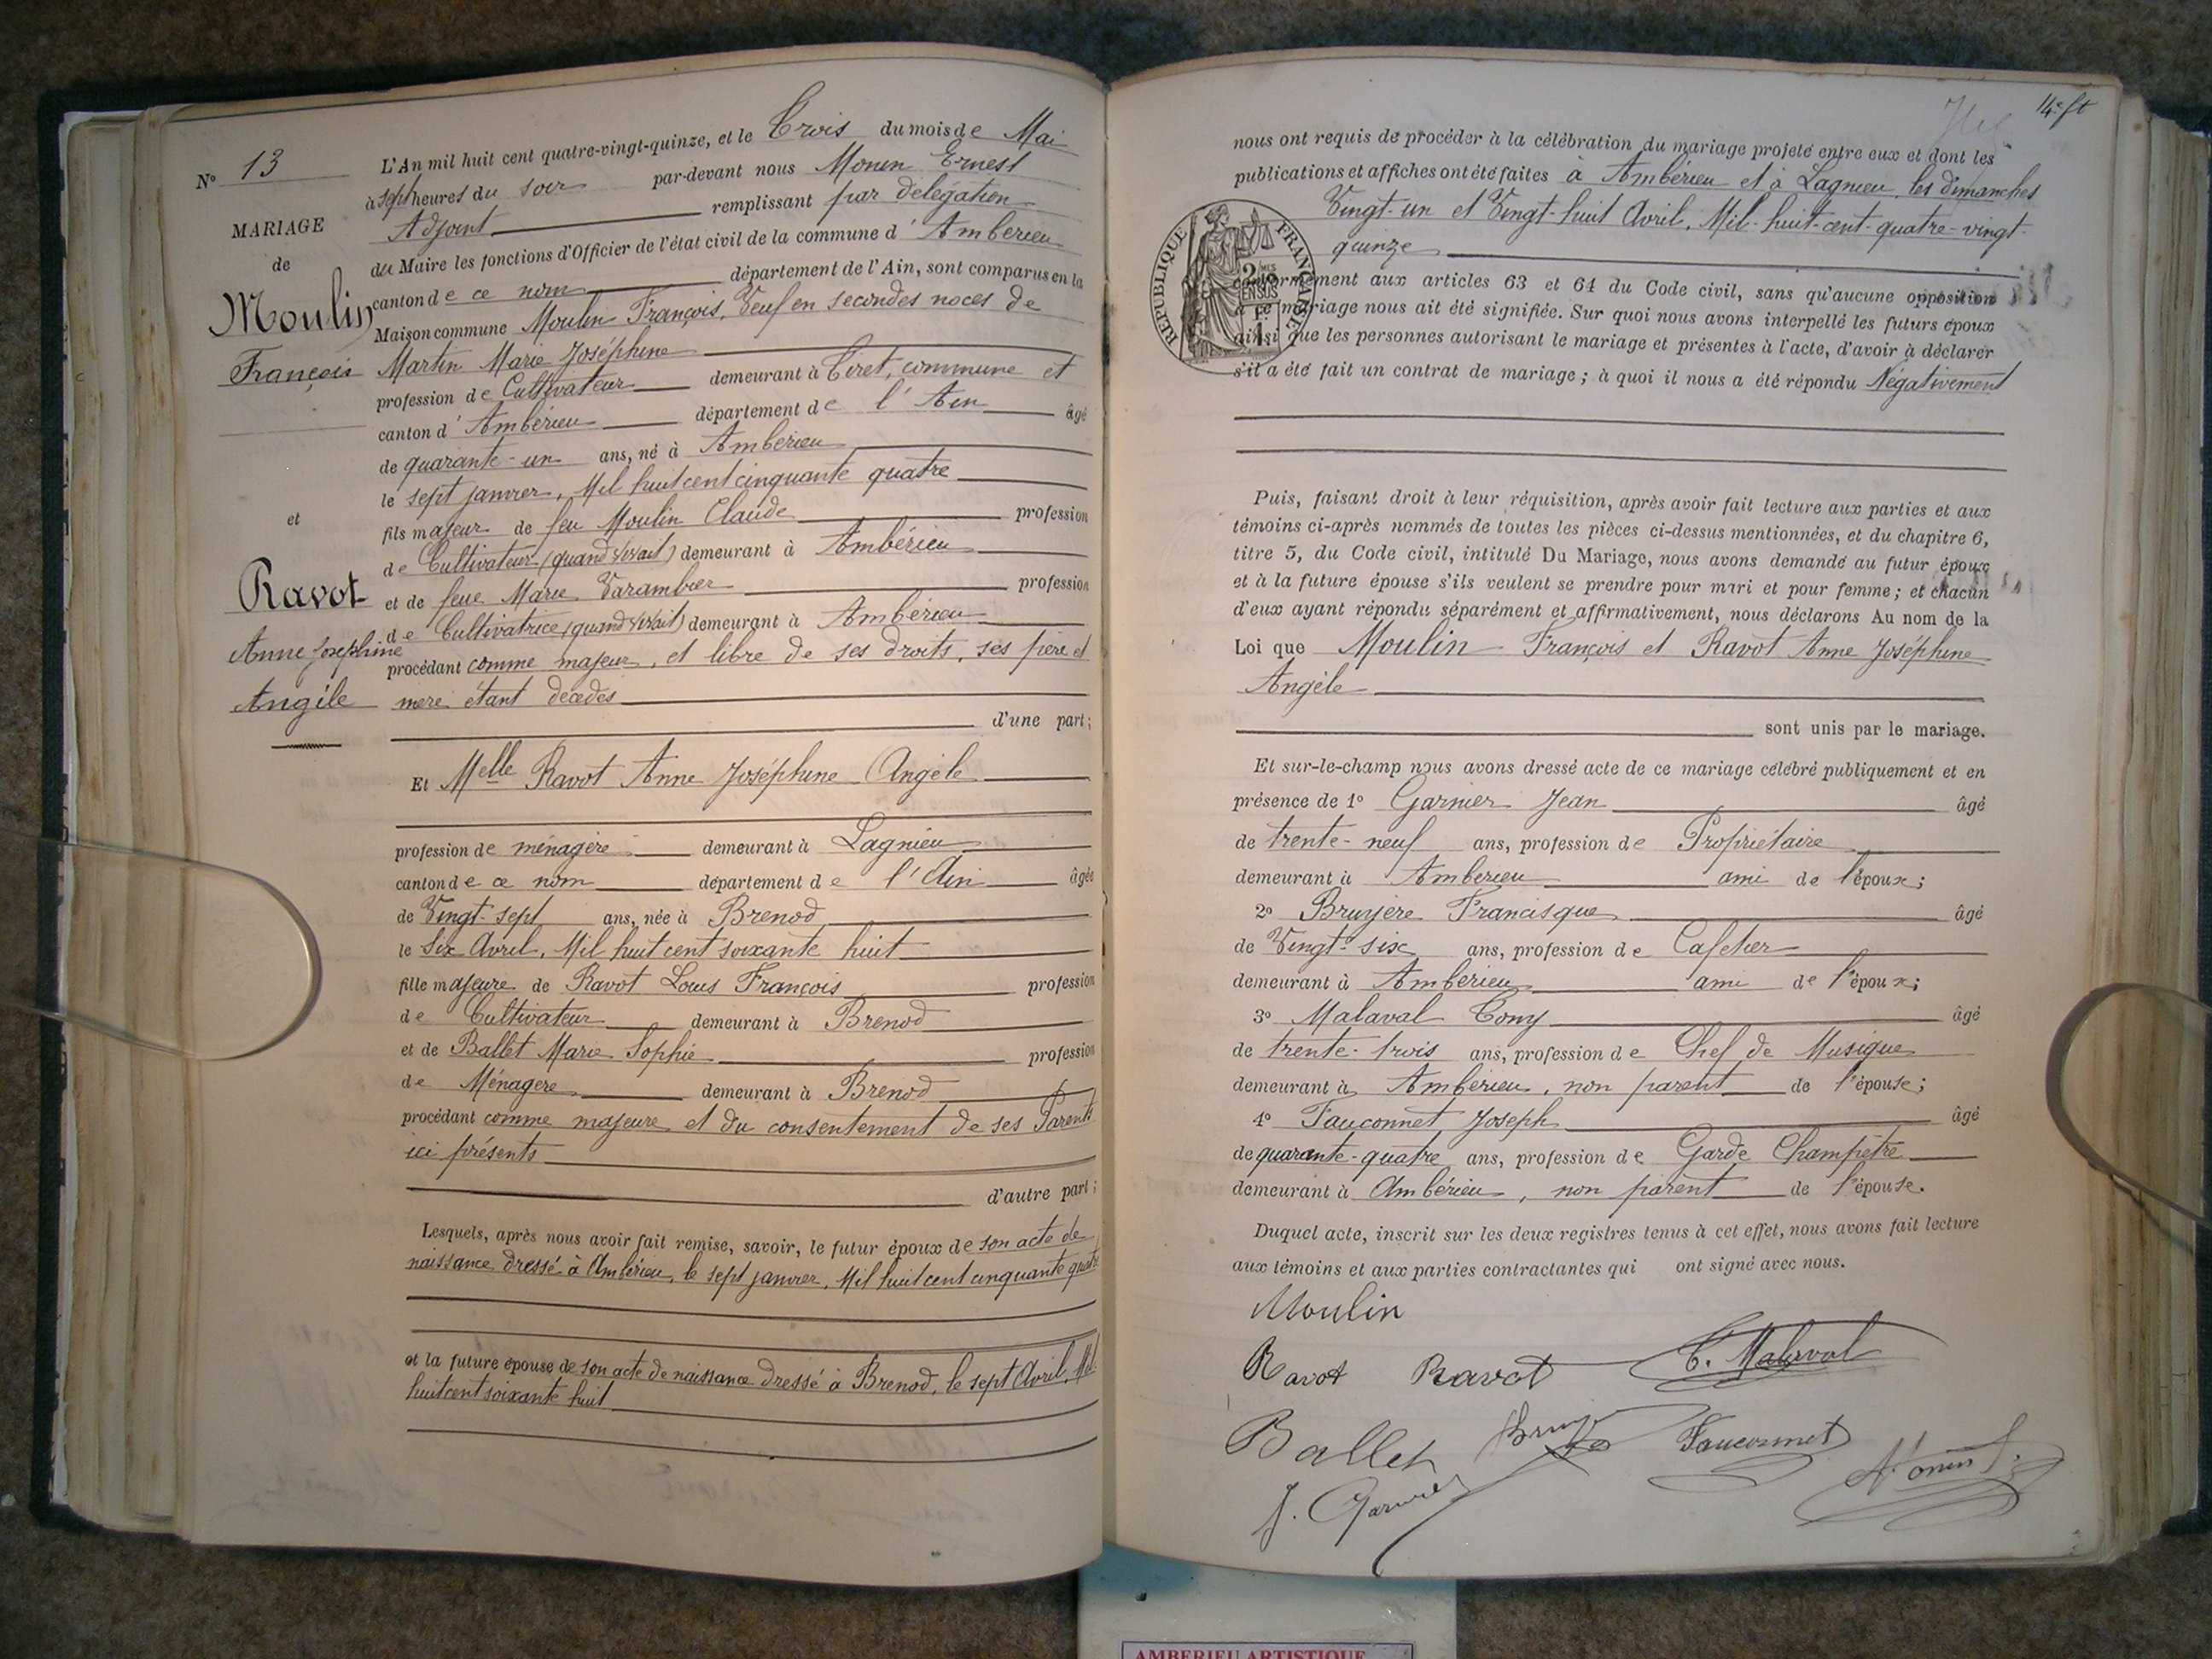 N° 13
MARIAGE
de
Moulin
François
et
Ravot
Anne Joséphine
Angèle
L'An mil huit cent quatre-vingt-quinze, et le Trois du mois de Mai
à sept heures du soir par-devant nous Monin Ernest
Adjoint remplissant par délégation
du Maire les fonctions d'Officier de l'état civil de la commune d'Ambérieu
canton de ce nom département de l'Ain, sont comparus en la
Maison commune Moulin François, Veuf en secondes noces de
Martin Marie Joséphine
profession de Cultivateur demeurant à Tiret, commune et
canton d'Ambérieu département de l'Ain âgé
de quarante-un ans, né à Ambérieu
le sept janvier, Mil huit cent cinquante quatre
fils majeur de feu Moulin Claude profession
de Cultivateur (quand vivait) demeurant à Ambérieu
et de feue Marie Varambier profession
de Cultivatrice (quand vivait) demeurant à Ambérieu
procédant comme majeur, et libre de ses droits, ses père et
mère étant décédés
d'une part;
Et Melle Ravot Anne Joséphine Angèle
profession de ménagère demeurant à Lagnieu
canton de ce nom département de l'Ain âgée
de Vingt-sept ans, née à Brenod
le Six Avril, Mil huit cent soixante huit
fille majeure de Ravot Louis François profession
de Cultivateur demeurant à Brenod
et de Ballet Marie Sophie profession
de Ménagère demeurant à Brenod
procédant comme majeure et du consentement de ses Parents
ici présents
d'autre part;
Lesquels, après nous avoir fait remise, savoir, le futur époux de son acte de
naissance dressé à Ambérieu, le sept janvier, Mil huit cent cinquante quatre
et la future épouse de son acte de naissance dressé à Brenod, le sept Avril, Mil
huit cent soixante huit
14e ft
nous ont requis de procéder à la célébration du mariage projeté entre eux et dont les
publications et affiches ont été faites à Ambérieu et à Lagnieu, les dimanches
Vingt-un et Vingt-huit Avril, Mil-huit-cent-quatre-vingt-
quinze
REPUBLIQUE FRANÇAISE
conformément aux articles 63 et 64 du Code civil, sans qu'aucune opposition
à ce mariage nous ait été signifiée. Sur quoi nous avons interpellé les futurs époux
ainsi que les personnes autorisant le mariage et présentes à l'acte, d'avoir à déclarer
s'il a été fait un contrat de mariage; à quoi il nous a été répondu Négativement
Puis, faisant droit à leur réquisition, après avoir fait lecture aux parties et aux
témoins ci-après nommés de toutes les pièces ci-dessus mentionnées, et du chapitre 6,
titre 5, du Code civil, intitulé Du Mariage, nous avons demandé au futur époux
et à la future épouse s'ils veulent se prendre pour mari et pour femme; et chacun
d'eux ayant répondu séparément et affirmativement, nous déclarons Au nom de la
Loi que Moulin François et Ravot Anne Joséphine
Angèle
sont unis par le mariage.
Et sur-le-champ nous avons dressé acte de ce mariage célébré publiquement et en
présence de 1° Garnier Jean âgé
de trente-neuf ans, profession de Propriétaire
demeurant à Ambérieu ami de l'époux;
2° Bruyère Francisque âgé
de Vingt-six ans, profession de Cafetier
demeurant à Ambérieu ami de l'époux;
3° Malaval Tony âgé
de trente-trois ans, profession de Chef de Musique
demeurant à Ambérieu, non parent de l'épouse;
4° Fauconnet Joseph âgé
de quarante-quatre ans, profession de Garde Champêtre
demeurant à Ambérieu, non parent de l'épouse.
Duquel acte, inscrit sur les deux registres tenus à cet effet, nous avons fait lecture
aux témoins et aux parties contractantes qui ont signé avec nous.
Moulin
Ravot Ravot T. Malaval
Ballet Fauconnet
J. Garnier
AMBERIEU ARTISTIQUE